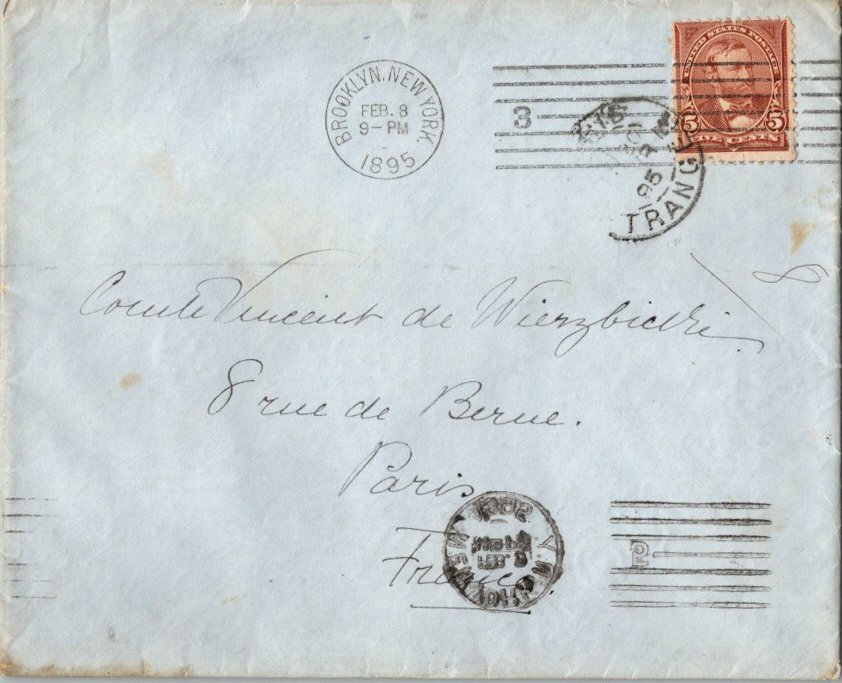 BROOKLYN, NEW YORK.
FEB. 8
9-PM
1895
3
UNITED STATES POSTAGE
5 5
FIVE CENTS
95
ETRANGER
8
Comte Vincent de Wierzbicki
8 rue de Berne.
Paris
France
NEW YORK
2